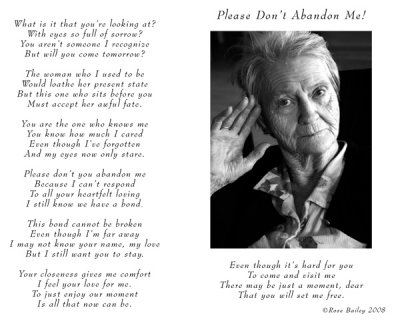 What is it that you're looking at?
With eyes so full of sorrow?
You aren't someone I recognize
But will you come tomorrow?
The woman who I used to be
Would loathe her present state
But this one who sits before you
Must accept her awful fate.
You are the one who knows me
You know how much I cared
Even though I've forgotten
And my eyes now only stare.
Please don't you abandon me
Because I can't respond
To all your heartfelt loving
I still know we have a bond.
This bond cannot be broken
Even though I'm far away
I may not know your name, my love
But I still want you to stay.
Your closeness gives me comfort
I feel your love for me.
To just enjoy our moment
Is all that now can be.
Please Don't Abandon Me!
Even though it's hard for you
To come and visit me
There may be just a moment, dear
That you will set me free.
©Rose Bailey 2008